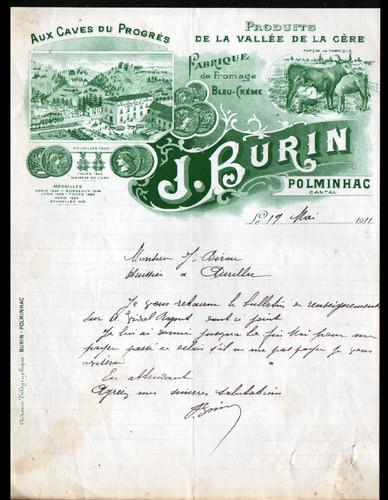 AUX CAVES DU PROGRÈS
PRODUITS
DE LA VALLÉE DE LA CÈRE
MARQUE DE FABRIQUE
FABRIQUE
de Fromage
BLEU-CRÈME
BRUXELLES 1910
TOURS 1892
MEMBRE DU JURY
MÉDAILLES
PARIS
BORDEAUX
LYON
TOURS 1892
PARIS
BRUXELLES 1910
J. BURIN
POLMINHAC
CANTAL
Le 19 Mai 1911
Monsieur
huissier à Aurillac
Je vous retourne le bulletin de renseignements
sur Mr Vidal ci joint
Je lui ai donné jusque la fin Mai pour me
payer passé ce délai s'il ne me paye pas je vous
aviserai
En attendant
Agréez mes sincères salutations
J. Burin
Adresse Télégraphique : BURIN - POLMINHAC